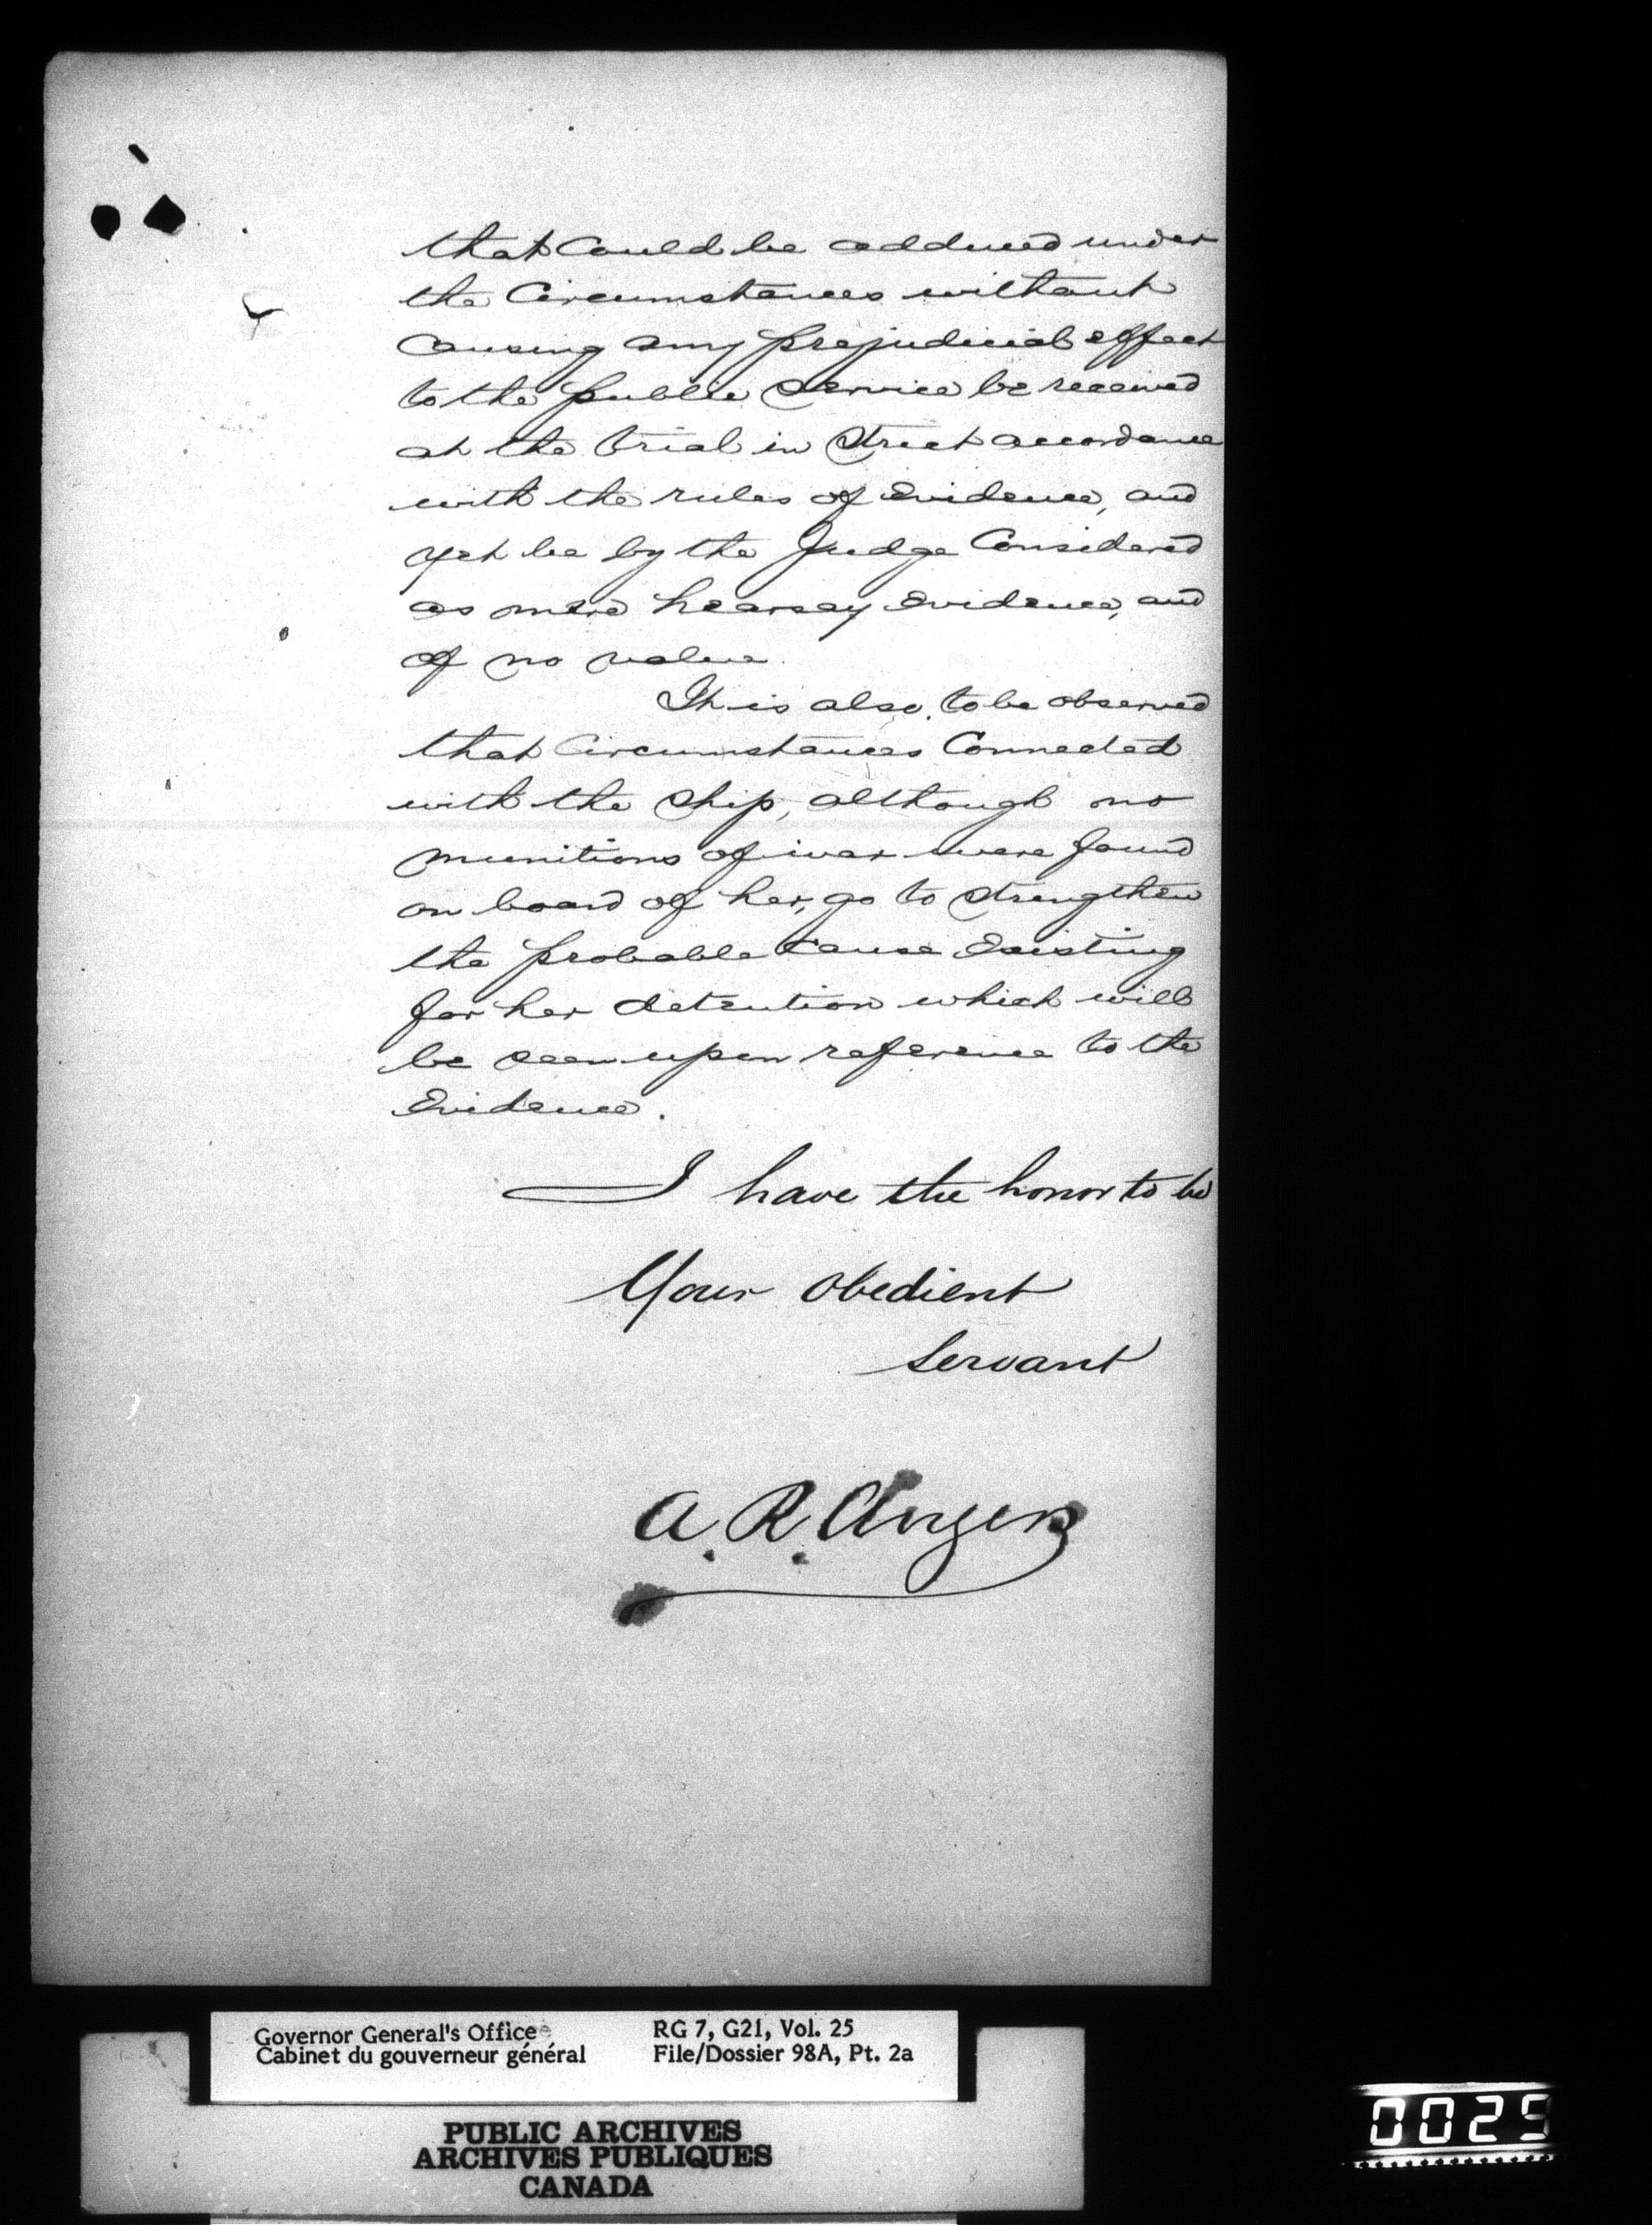 that could be adduced under
the Circumstances without
Causing any prejudicial effect
to the public Service be received
at the trial in Strict accordance
with the rules of Evidence, and
yet be by the Judge Considered
as mere hearsay Evidence, and
of no value.
It is also to be observed
that Circumstances Connected
with the Ship, although no
munitions of war were found
on board of her, go to Strengthen
the probable Cause Existing
for her detention which will
be seen upon reference to the
Evidence.
I have the honor to be
Your obedient
Servant
A. R. Angers
Governor General's Office
RG 7, G21, Vol. 25
Cabinet du gouverneur général
File/Dossier 98A, Pt. 2a
PUBLIC ARCHIVES
ARCHIVES PUBLIQUES
CANADA
0025